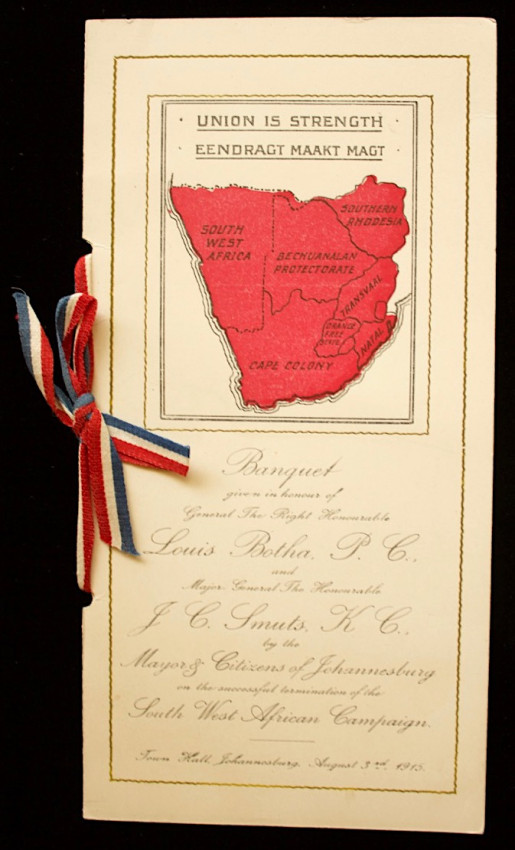 UNION IS STRENGTH
EENDRAGT MAAKT MAGT
SOUTHERN
RHODESIA
SOUTH
WEST
AFRICA
BECHUANALAN
PROTECTORATE
TRANSVAAL
ORANGE
FREE
STATE
NATAL
CAPE COLONY
Banquet
given in honour of
General The Right Honourable
Louis Botha, P. C.,
and
Major General The Honourable
J. C. Smuts, K C.,
by the
Mayor & Citizens of Johannesburg
on the successful termination of the
South West African Campaign.
Town Hall, Johannesburg, August 3rd, 1915.